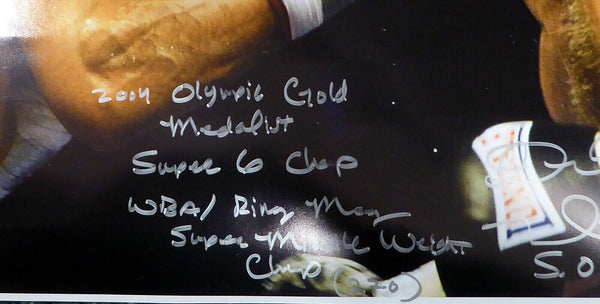 2004 Olympic Gold
Medalist
Super 6 Chap
WBA/ Ring Mag
Super Middle Weight
Chap (27-0)
S.O